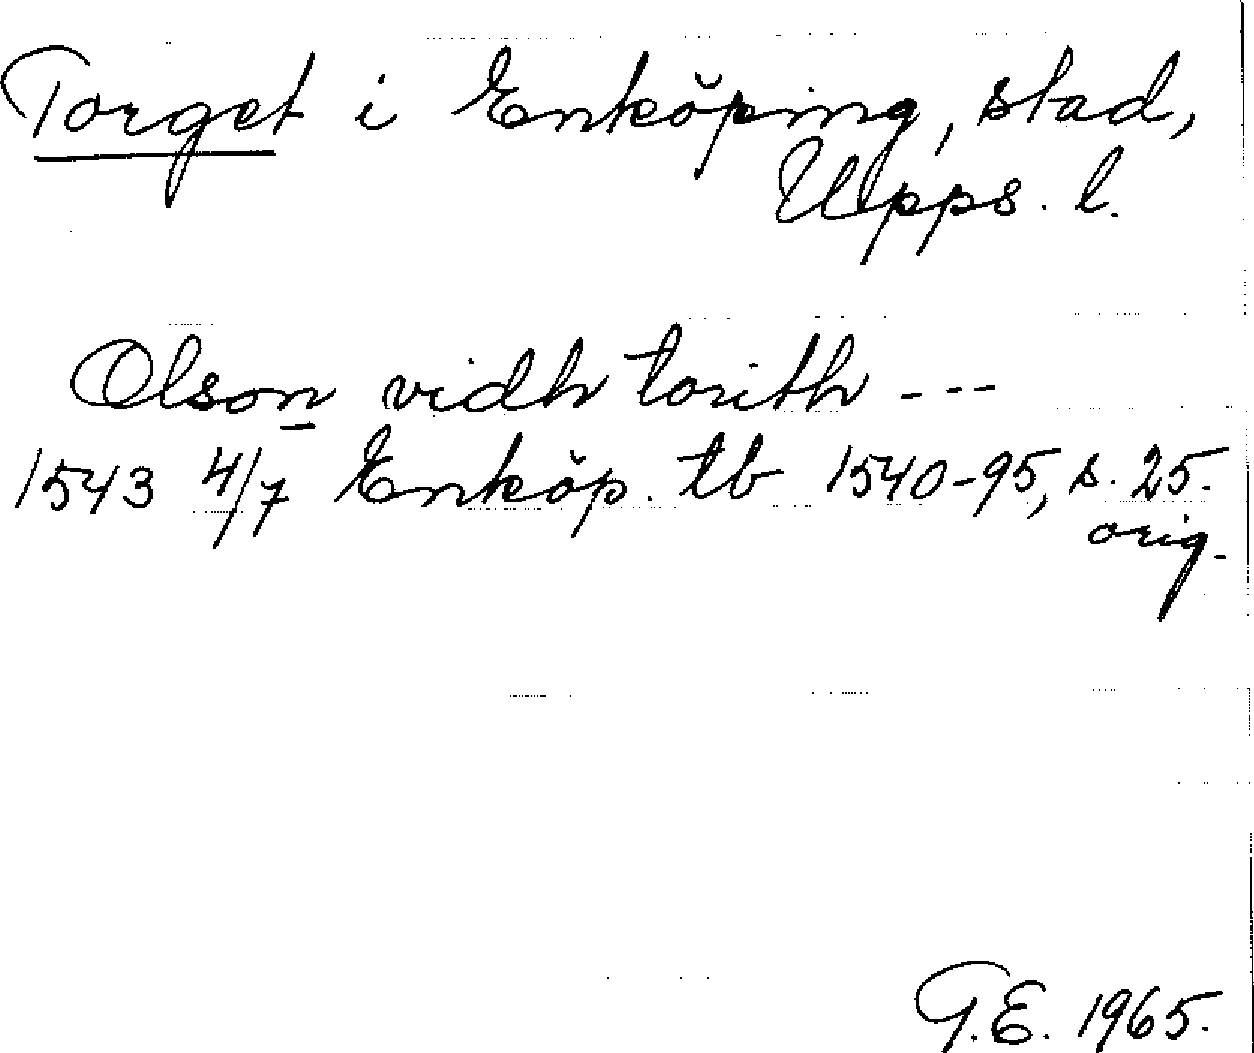 Torget i Enköping, stad,
Upps. l.
Olson vidh torith ---
1543 4/7 Enköp. tb 1540-95, s. 25.
orig.
G.E. 1965.